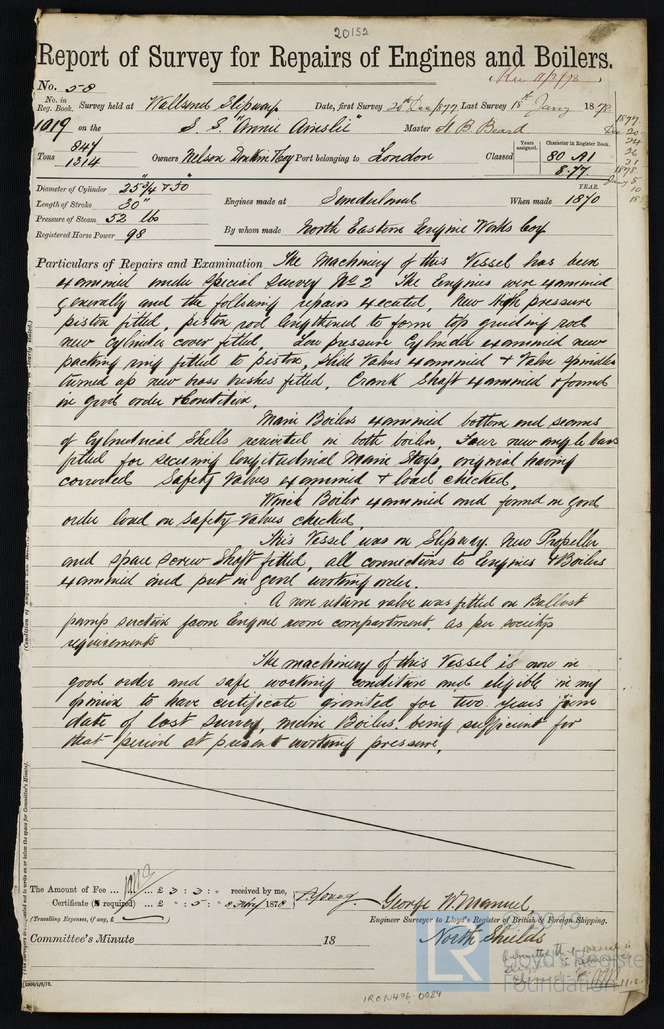 20152
Report of Survey for Repairs of Engines and Boilers.
No. 58
No. in Reg. Book. Survey held at Wallsend Slipway Date, first Survey 20th Dec 1877 Last Survey 18th Jany 1878
1019 on the S.S. "Annie Ainslie" Master A B Beard
Tons 847 1314 Owners Nelson Donkin & Coy Port belonging to London Classed Years assigned. Character in Register Book. 80 A1 8.77.
1877
Dec 20
24
26
31
1878
Jany 5
10
18
Diameter of Cylinder 25¾" & 50"
Length of Stroke 30"
Pressure of Steam 52 lb
Registered Horse Power 98
Engines made at Sunderland When made YEAR. 1870
By whom made North Eastern Engine Works Coy
Particulars of Repairs and Examination The Machinery of this Vessel has been
examined under special survey No 2 The Engines were examined
generally and the following repairs executed. New high pressure
piston fitted, piston rod lengthened to form top guiding rod
new cylinder cover fitted. Low pressure Cylinder examined new
packing ring fitted to piston, Slide Valves examined & Valve Spindles
turned up new brass bushes fitted. Crank Shaft examined & found
in good order & Condition.
Main Boilers examined bottom end seams
of Cylindrical Shells rerivited in both boilers, Four new angle bars
fitted for securing longitudinal Main Stays, original having
corroded Safety Valves examined & load checked.
Winch Boiler examined and found in good
order load on Safety Valves checked.
This Vessel was on Slipway. New Propeller
and spare screw Shaft fitted, all connections to Engines & Boilers
examined and put in good working order.
A non return valve was fitted on Ballast
pump suction from Engine room compartment. as per society's
requirements
The machinery of this Vessel is now in
good order and safe working condition and eligible in my
opinion to have certificate granted for two years from
date of last survey, main Boilers being sufficient for
that period at present working pressure.
The Amount of Fee ... £ 3 : 3 : - received by me,
Certificate (if required) ... £ : 5 : - 1878
(Travelling Expenses, if any, £
George W Manuel
Engineer Surveyor to Lloyd's Register of British & Foreign Shipping.
Committee's Minute 18
North Shields
© 2019
LR
Lloyd's Register
Foundation
IRON496-0084